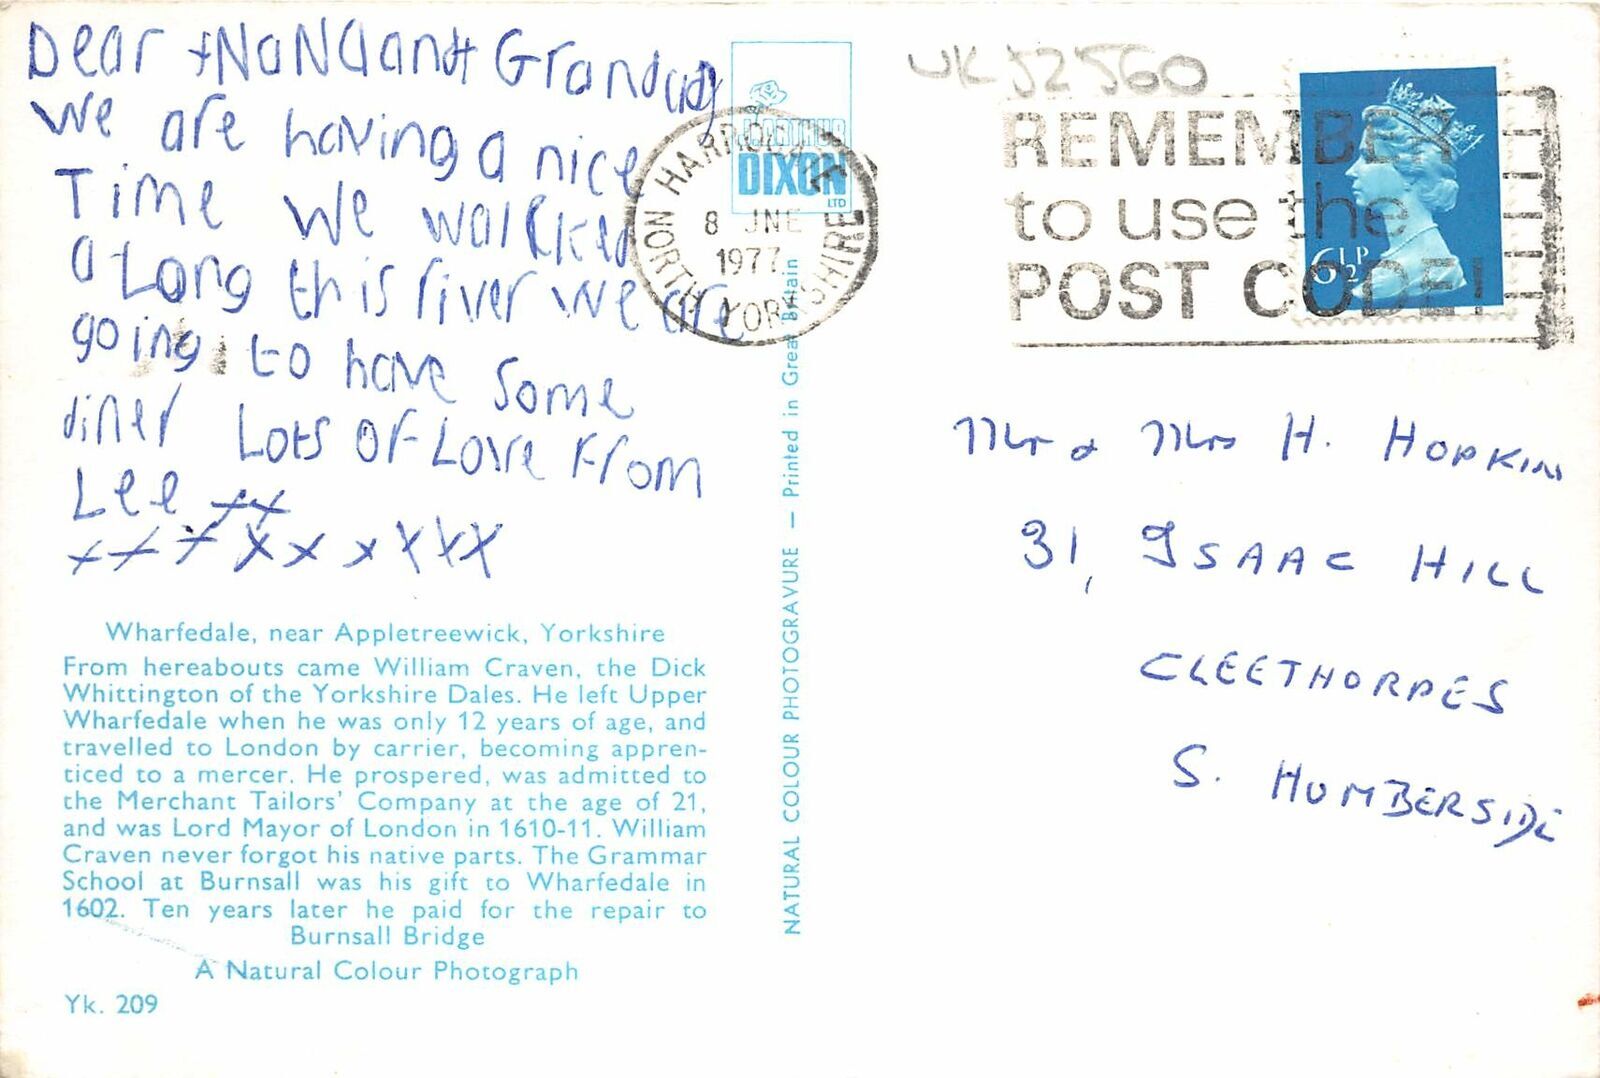 Dear + NaNa and Grandad
We are having a nice
Time We walkked
a Long this river We are
going to have some
diner Lots OF Love From
Lee xx
x x x x x x x x x
Wharfedale, near Appletreewick, Yorkshire
From hereabouts came William Craven, the Dick
Whittington of the Yorkshire Dales. He left Upper
Wharfedale when he was only 12 years of age, and
travelled to London by carrier, becoming appren-
ticed to a mercer. He prospered, was admitted to
the Merchant Tailors' Company at the age of 21,
and was Lord Mayor of London in 1610-11. William
Craven never forgot his native parts. The Grammar
School at Burnsall was his gift to Wharfedale in
1602. Ten years later he paid for the repair to
Burnsall Bridge
A Natural Colour Photograph
Yk. 209
ARTHUR
DIXON
LTD
NATURAL COLOUR PHOTOGRAVURE — Printed in Great Britain
HARROGATE
8 JNE
1977
NORTH YORKSHIRE
UK 52560
REMEMBER
to use the
POST CODE!
6½P
Mr & Mrs H. HOPKIN
31, ISAAC HILL
CLEETHORPES
S. HUMBERSIDE